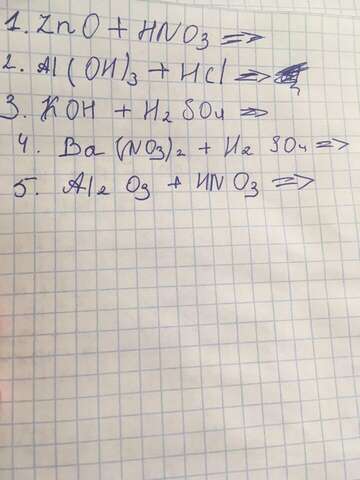 1. ZnO + HNO3 =>
2. Al(OH)3 + HCl =>
3. KOH + H2SO4 =>
4. Ba(NO3)2 + H2SO4 =>
5. Al2O3 + HNO3 =>